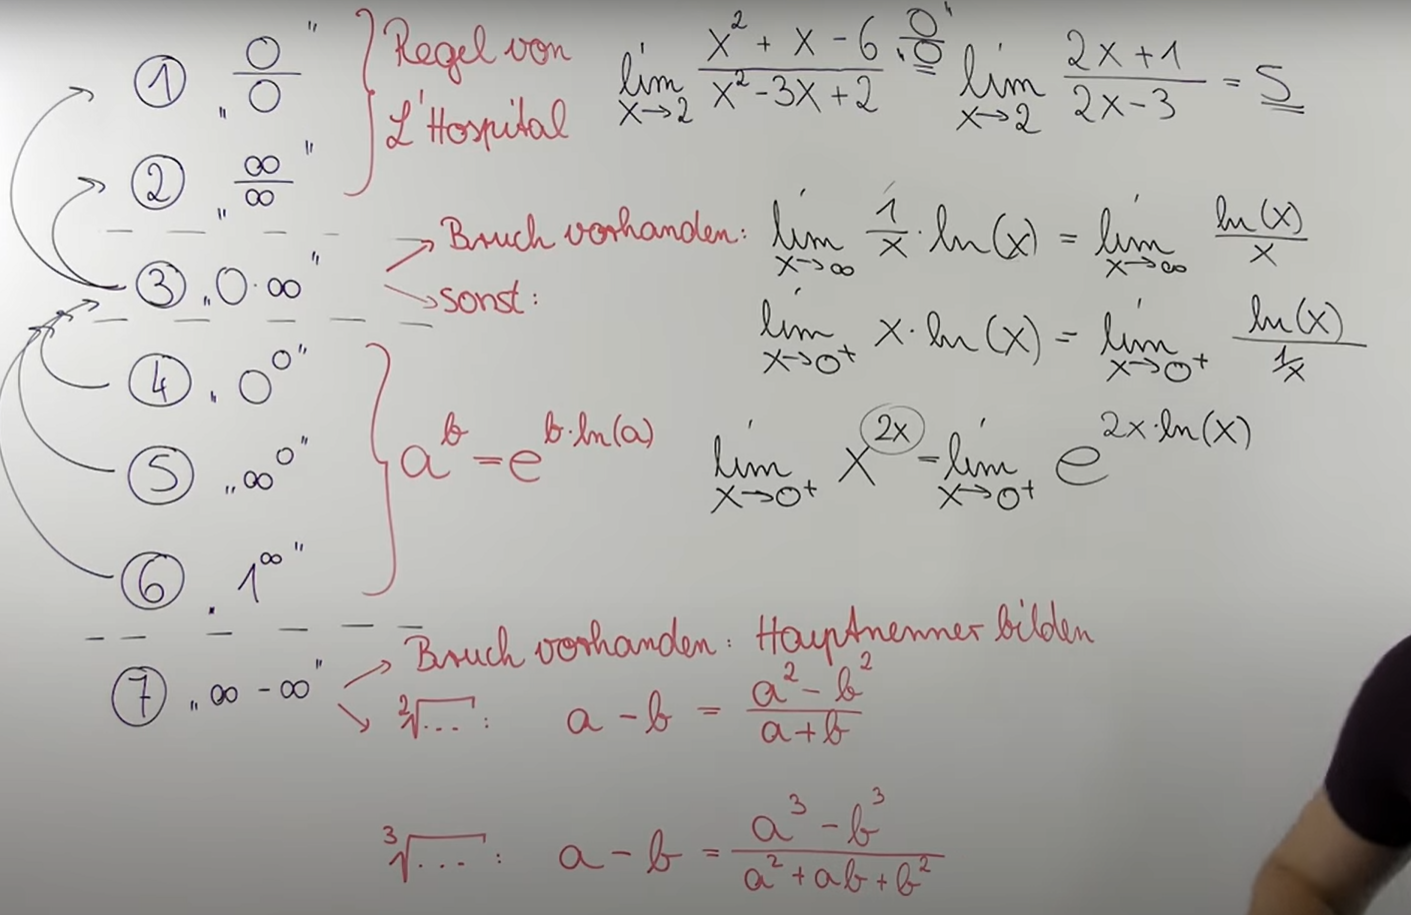 ① „0/0" Regel von L'Hospital lim x→2 (x² + x - 6)/(x² - 3x + 2) „0/0" = lim x→2 (2x + 1)/(2x - 3) = 5
② „∞/∞"
③ „0·∞" → Bruch vorhanden: lim x→∞ 1/x · ln(x) = lim x→∞ ln(x)/x
→ sonst: lim x→0⁺ x · ln(x) = lim x→0⁺ ln(x)/(1/x)
④ „0⁰"
⑤ „∞⁰" a^b = e^(b·ln(a)) lim x→0⁺ x^(2x) = lim x→0⁺ e^(2x·ln(x))
⑥ „1^∞"
⑦ „∞ - ∞" → Bruch vorhanden: Hauptnenner bilden
→ ²√...: a - b = (a² - b²)/(a + b)
³√...: a - b = (a³ - b³)/(a² + ab + b²)